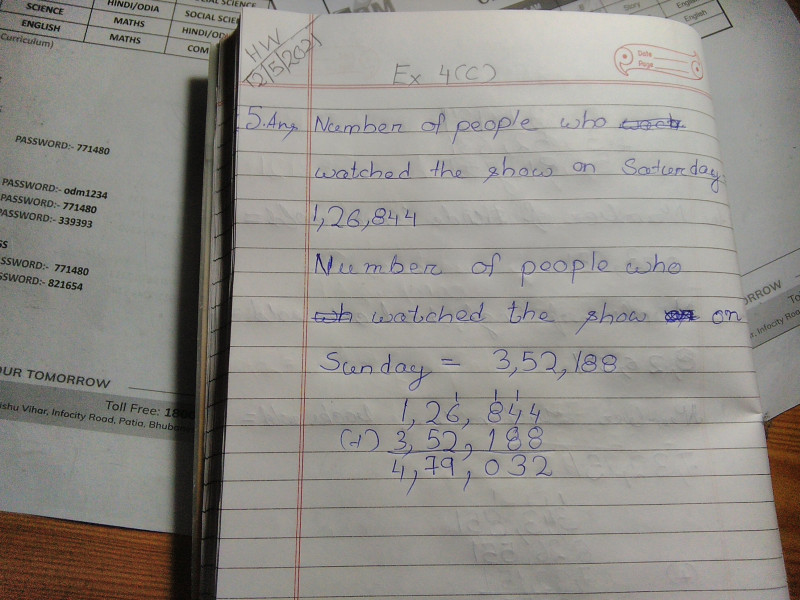 HINDI/ODIA
SOCIAL SCIENCE
SCIENCE
MATHS
SOCIAL SCIE
ENGLISH
HINDI/OD
Curriculum)
MATHS
COM
Story
English
English
PASSWORD:- 771480
PASSWORD:- odm1234
PASSWORD:- 771480
PASSWORD:- 339393
SSWORD:- 771480
SWORD:- 821654
OUR TOMORROW
Toll Free: 18
ishu Vihar, Infocity Road, Patia, Bhuban
ORROW
To
r, Infocity Roa
HW
12/5/2021
Ex 4(C)
Date
Page
5.Ans Number of people who
watched the show on Saturday
1,26,844
Number of people who
watched the show on
Sunday = 3,52,188
1 1 1
1,26,844
(+) 3,52,188
4,79,032